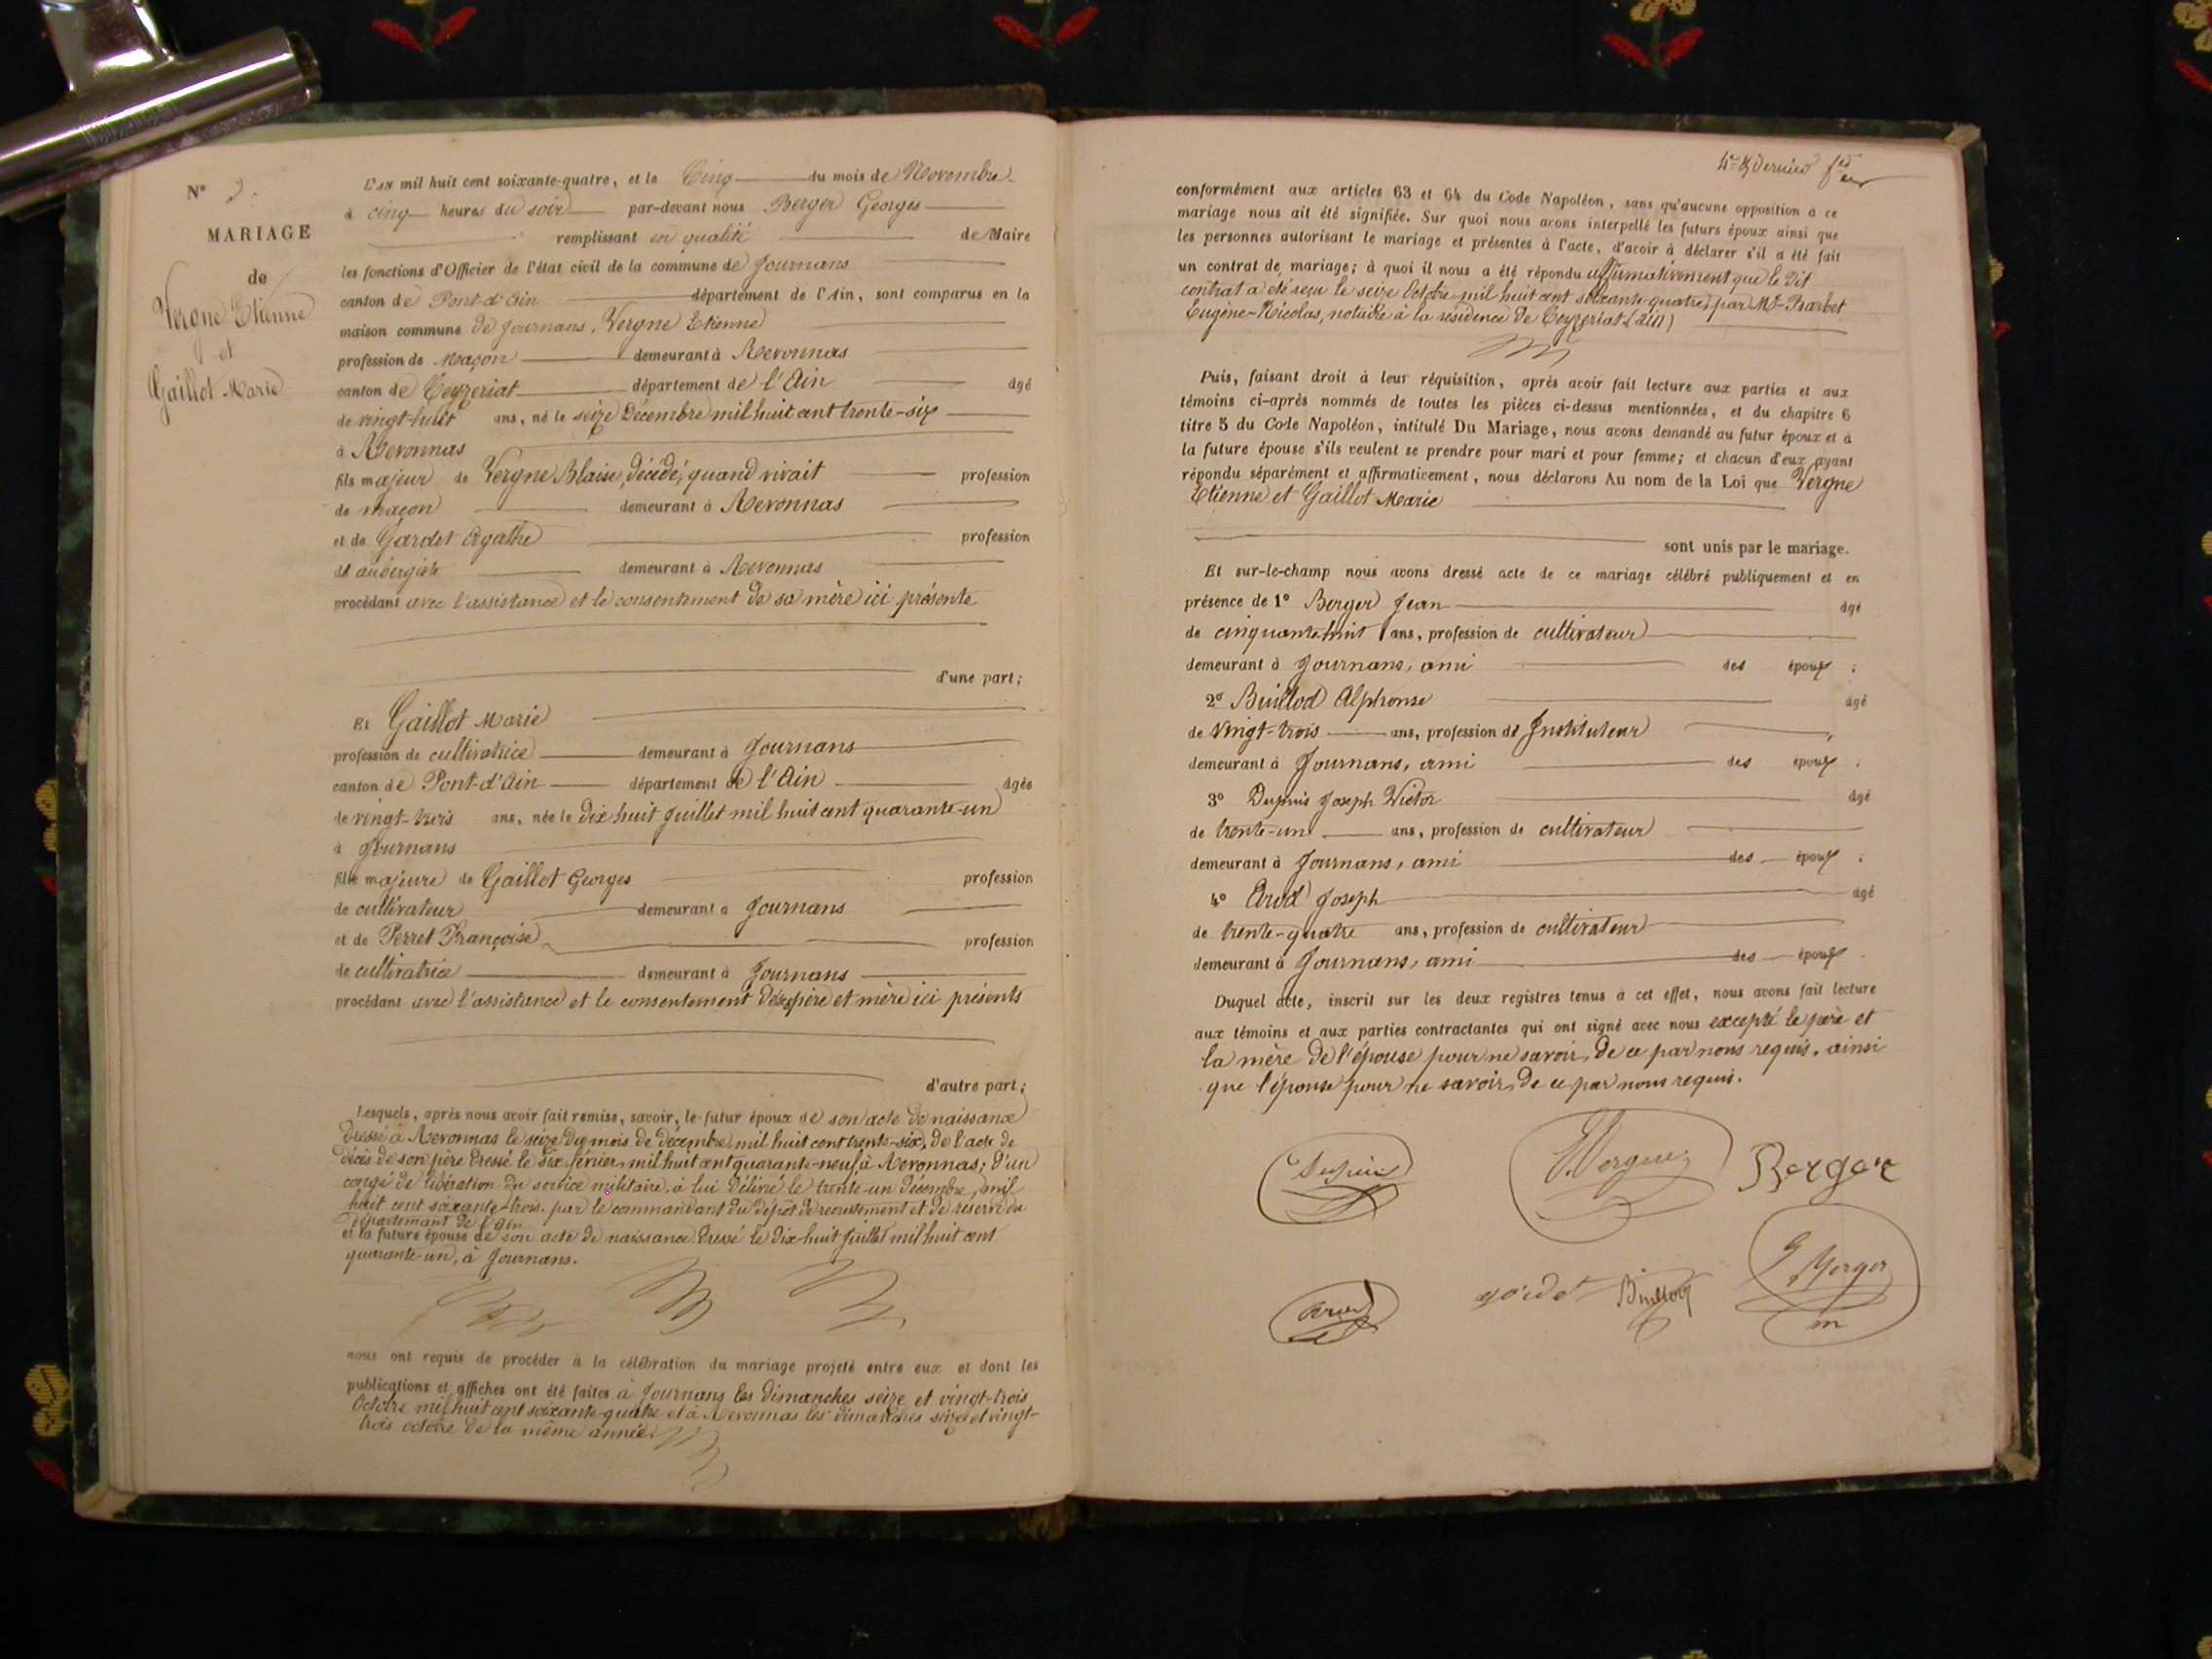 N° 3.
MARIAGE
de
Vergne Etienne
et
Gaillot Marie
L'an mil huit cent soixante-quatre, et le Cinq du mois de Novembre
à cinq heures du soir par-devant nous Berger Georges
remplissant en qualité de Maire
les fonctions d'Officier de l'état civil de la commune de Journans
canton de Pont-d'Ain département de l'Ain, sont comparus en la
maison commune de Journans, Vergne Etienne
profession de Maçon demeurant à Revonnas
canton de Ceyzeriat département de l'Ain âgé
de vingt-huit ans, né le seize Décembre mil huit cent trente-six
à Revonnas
fils majeur de Vergne Blaise, décédé, quand vivait profession
de maçon demeurant à Revonnas
et de Gardet Agathe profession
de aubergiste demeurant à Revonnas
procédant avec l'assistance et le consentement de sa mère ici présente
d'une part;
Et Gaillot Marie
profession de cultivatrice demeurant à Journans
canton de Pont-d'Ain département de l'Ain âgée
de vingt-trois ans, née le Dix huit Juillet mil huit cent quarante-un
à Journans
fille majeure de Gaillot Georges profession
de cultivateur demeurant à Journans
et de Perret Françoise profession
de cultivatrice demeurant à Journans
procédant avec l'assistance et le consentement de ses père et mère ici présents
d'autre part;
Lesquels, après nous avoir fait remise, savoir, le futur époux de son acte de naissance
dressé à Revonnas le seize du mois de décembre mil huit cent trente-six, de l'acte de
décès de son père dressé le six février mil huit cent quarante-neuf à Revonnas; d'un
congé de libération du service militaire à lui délivré le trente-un décembre mil
huit cent soixante-trois par le commandant du dépôt de recrutement et de réserve du
département de l'Ain
et la future épouse de son acte de naissance dressé le dix-huit Juillet mil huit cent
quarante-un, à Journans.
nous ont requis de procéder à la célébration du mariage projeté entre eux et dont les
publications et affiches ont été faites à Journans les dimanches seize et vingt-trois
Octobre mil huit cent soixante-quatre et à Revonnas les dimanches seize et vingt-
trois octobre de la même année.
4e & dernier feuillet
conformément aux articles 63 et 64 du Code Napoléon, sans qu'aucune opposition à ce
mariage nous ait été signifiée. Sur quoi nous avons interpellé les futurs époux ainsi que
les personnes autorisant le mariage et présentes à l'acte, d'avoir à déclarer s'il a été fait
un contrat de mariage; à quoi il nous a été répondu affirmativement que le dit
contrat a été reçu le seize Octobre mil huit cent soixante-quatre, par Me Barbet
Eugène-Nicolas, notaire à la résidence de Ceyzeriat (Ain)
Puis, faisant droit à leur réquisition, après avoir fait lecture aux parties et aux
témoins ci-après nommés de toutes les pièces ci-dessus mentionnées, et du chapitre 6
titre 5 du Code Napoléon, intitulé Du Mariage, nous avons demandé au futur époux et à
la future épouse s'ils veulent se prendre pour mari et pour femme; et chacun d'eux ayant
répondu séparément et affirmativement, nous déclarons Au nom de la Loi que Vergne
Etienne et Gaillot Marie
sont unis par le mariage.
Et sur-le-champ nous avons dressé acte de ce mariage célébré publiquement et en
présence de 1° Berger Jean âgé
de cinquante-huit ans, profession de cultivateur
demeurant à Journans, ami des époux ;
2° Buillod Alphonse âgé
de vingt-trois ans, profession de Instituteur
demeurant à Journans, ami des époux ;
3° Dupuis Joseph Victor âgé
de trente-un ans, profession de cultivateur
demeurant à Journans, ami des époux ;
4° Arud Joseph âgé
de trente-quatre ans, profession de cultivateur
demeurant à Journans, ami des époux .
Duquel acte, inscrit sur les deux registres tenus à cet effet, nous avons fait lecture
aux témoins et aux parties contractantes qui ont signé avec nous excepté le père et
la mère de l'épouse pour ne savoir, de ce par nous requis, ainsi
que l'épouse pour ne savoir, de ce par nous requis.
Dupuis
E. Vergne
Berger
Arud
gardet
Buillod
G Berger
m